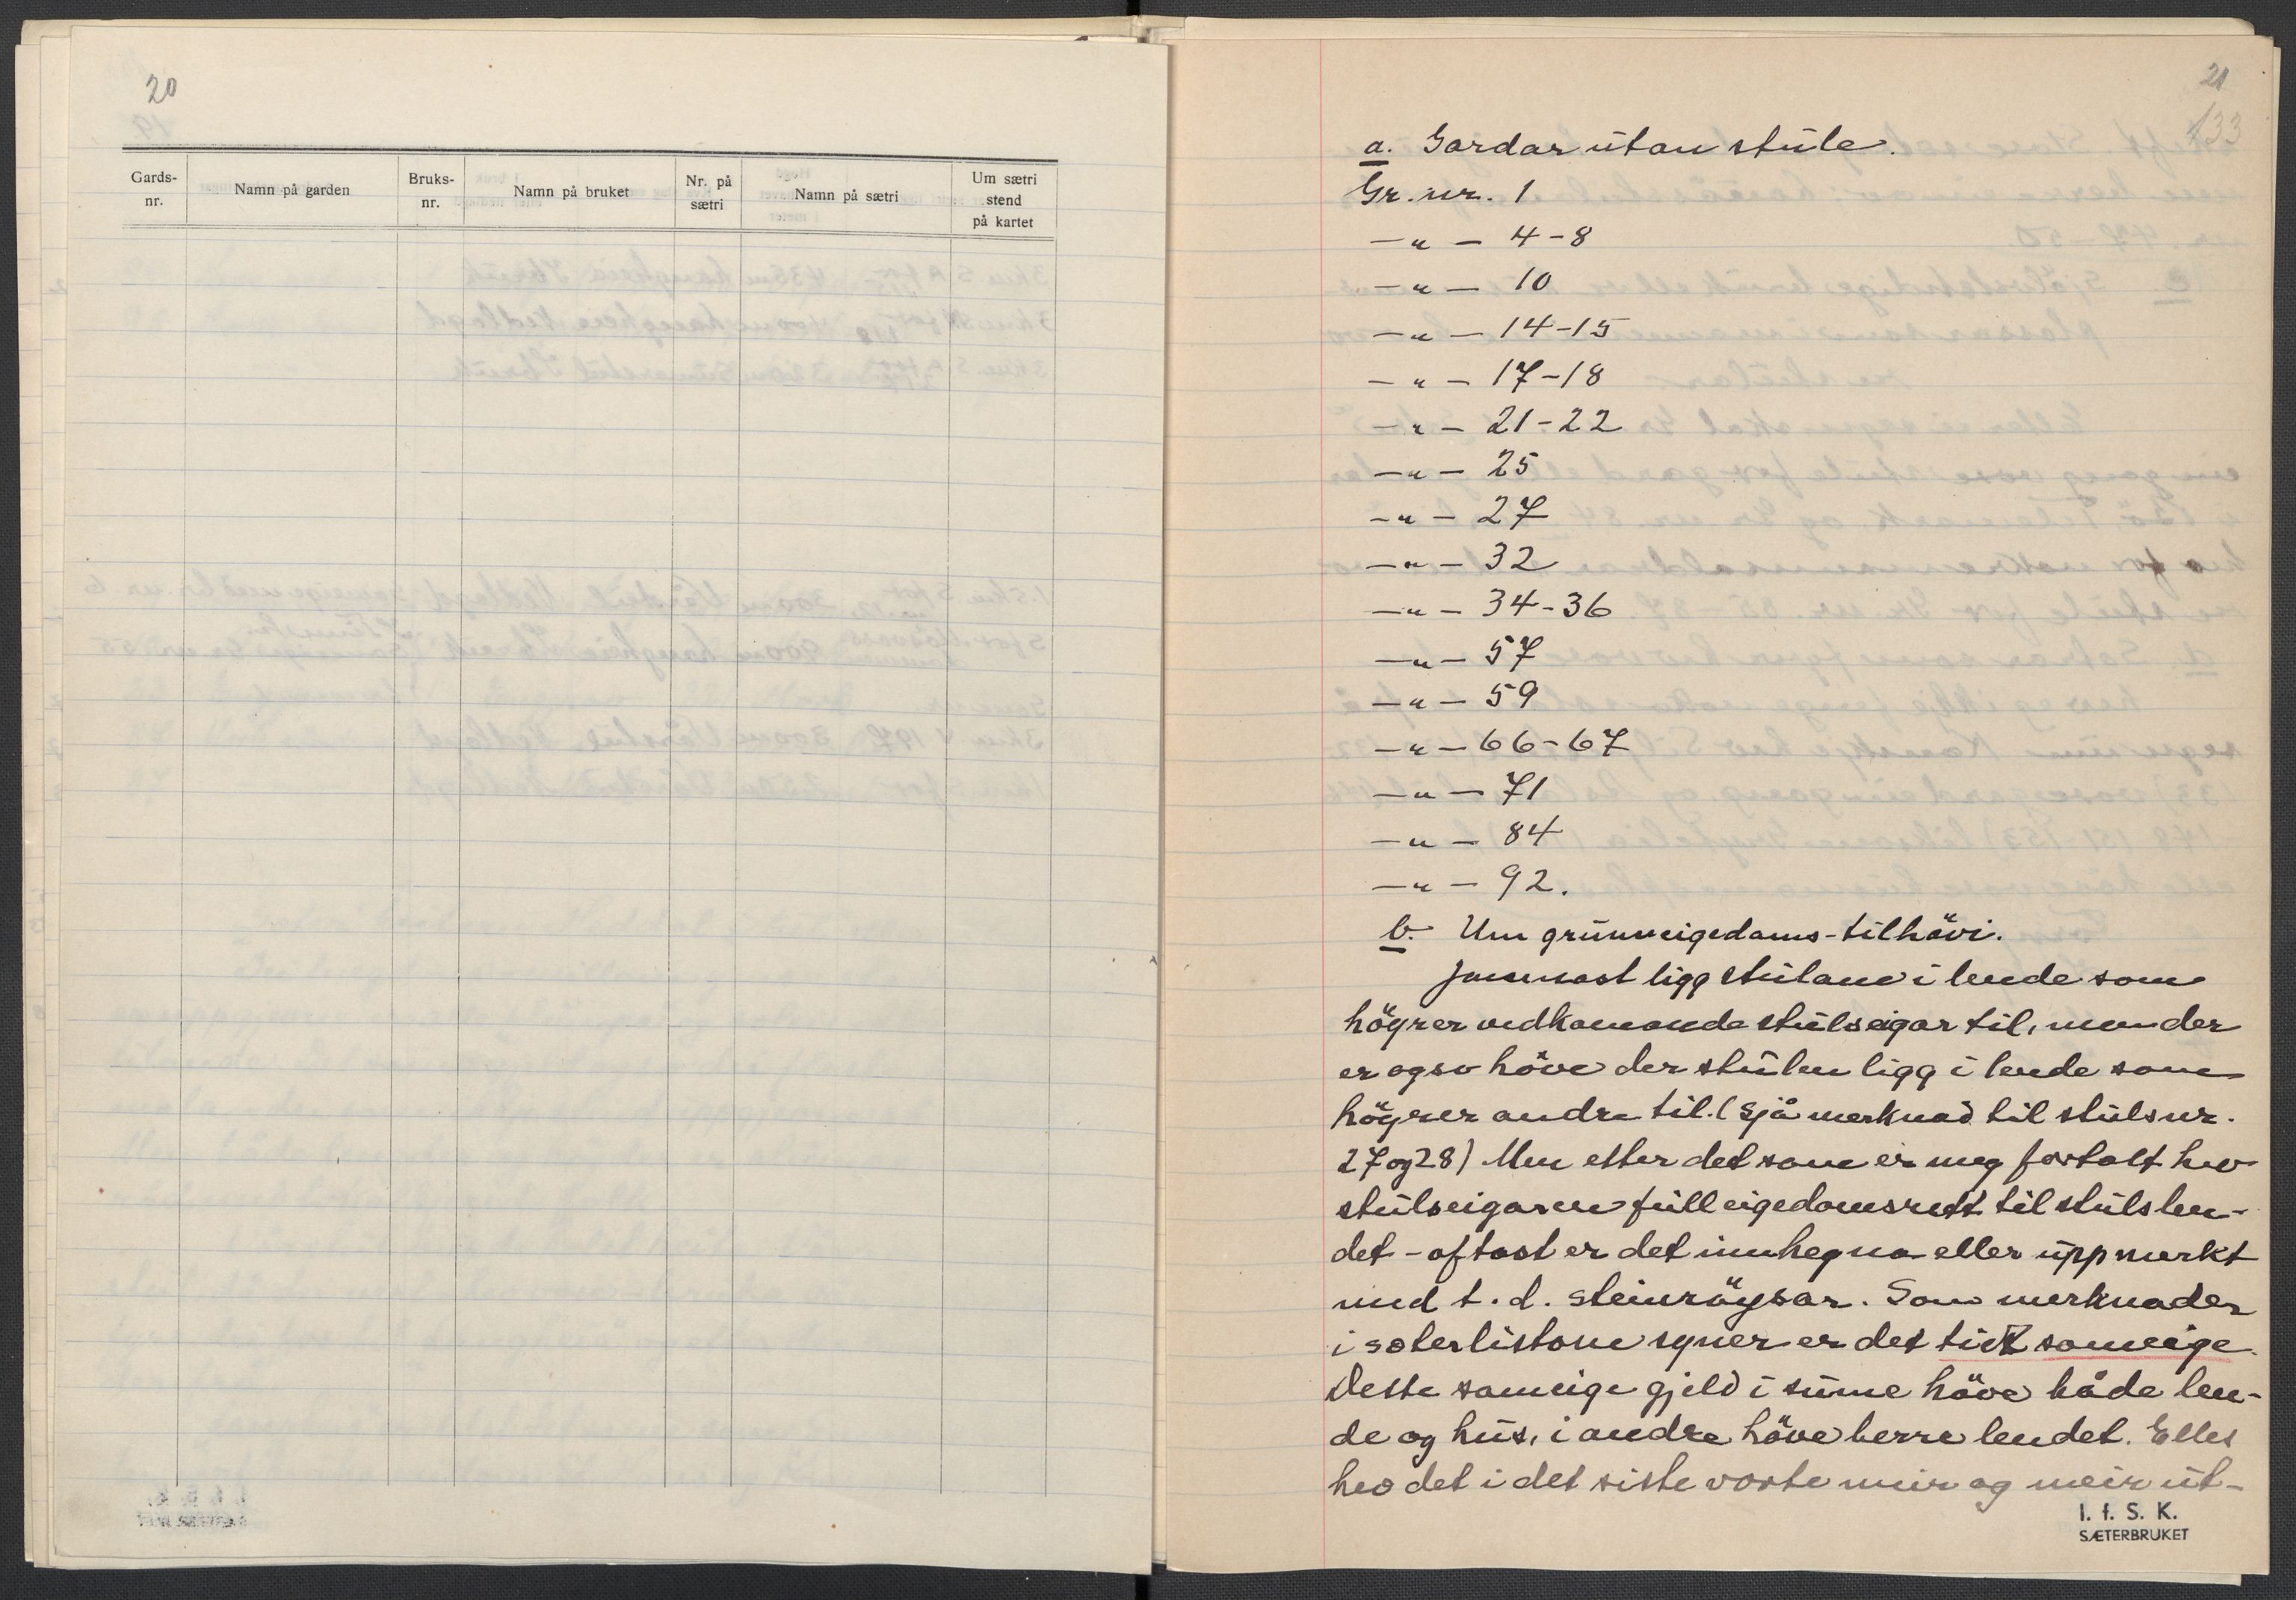 20
Gards-
nr.
Namn på garden
Bruks-
nr.
Namn på bruket
Nr. på
sætri
Namn på sætri
Um sætri
stend
på kartet
21
133
a. Gardar utan stule.
Gr. nr. 1
—"— 4-8
—"— 10
—"— 14-15
—"— 17-18
—"— 21-22
—"— 25
—"— 27
—"— 32
—"— 34-36
—"— 57
—"— 59
—"— 66-67
—"— 71
—"— 84
—"— 92.
b. Um grunneigedams-tilhövi.
Jamnast ligg stulane i lende som
höyrer vedkomande stulseigar til, men der
er ogso höve der stulen ligg i lende som
höyrer andre til. (Sjå merknad til stulsnr.
27 og 28) Men etter det som er meg fortalt hev
stulseigaren full eigedomsrett til stulslen-
det - oftast er det innhegna eller uppmerkt
med t.d. steinröysar. Som merknader
i soterlistone syner er det tidt sameige.
Dette sameige gjeld i sume höve både len-
de og hus, i andre höve berre lendet. Elles
hev det i det siste vorte meir og meir ut-
I. f. S. K.
SÆTERBRUKET